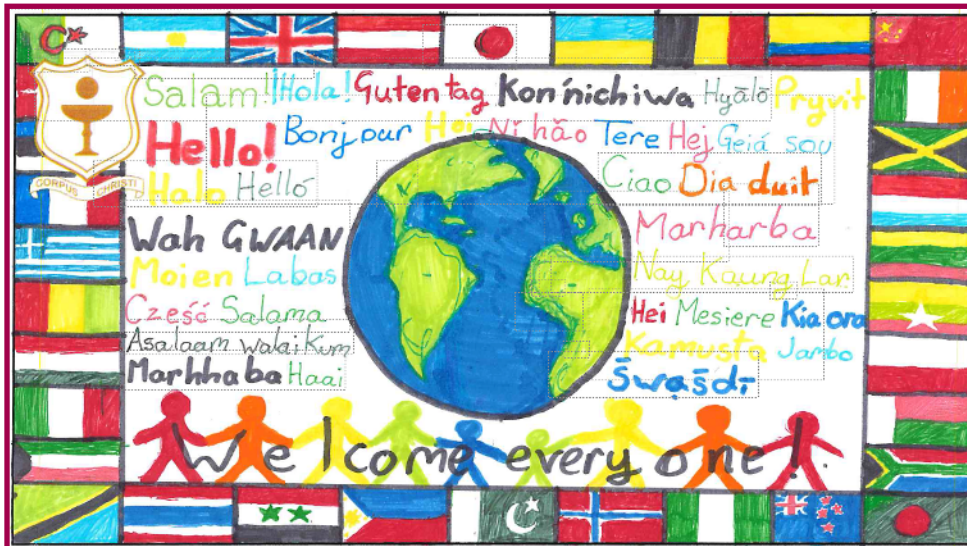 Salam! ¡Hola! Guten tag Kon'nichiwa Hyālō Pryvit
Hello! Bonjour Hoi Nǐ hǎo Tere Hej Geiá sou
Halo Helló Ciao Dia duit
CORPUS CHRISTI
Wah GWAAN Marharba
Moien Labas Nay Kaung Lar
Cześć Salama Hei Mesiere Kia ora
Asalaam walai Kum Kamusta Jambo
Marhhaba Haai S̄wạs̄dī
Welcome everyone!